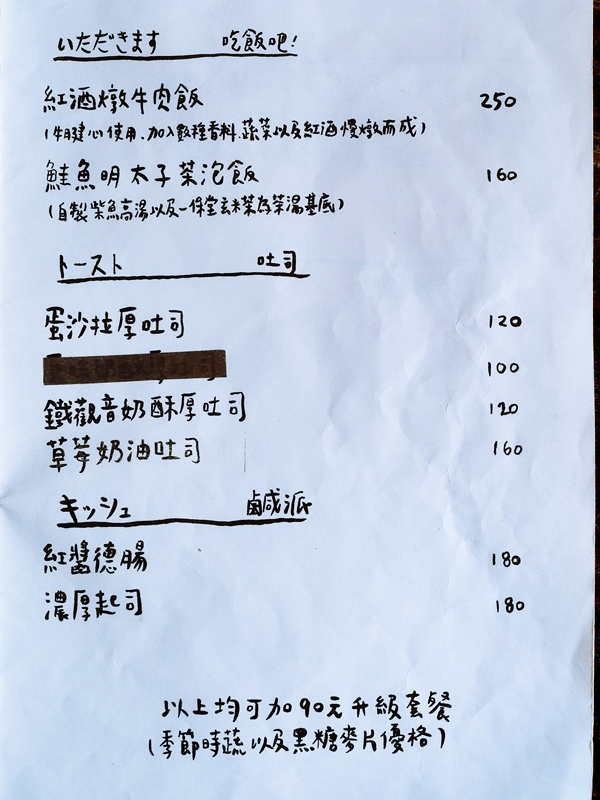 いただきます 吃飯吧!
紅酒燉牛肉飯 250
(牛腱心使用、加入數種香料、蔬菜以及紅酒慢燉而成)
鮭魚明太子茶泡飯 160
(自製柴魚高湯以及一保堂玄米茶為茶湯基底)
トースト 吐司
蛋沙拉厚吐司 120
100
鐵觀音奶酥厚吐司 120
草莓奶油吐司 160
キッシュ 鹹派
紅醬德腸 180
濃厚起司 180
以上均可加90元升級套餐
(季節時蔬以及黑糖麥片優格)